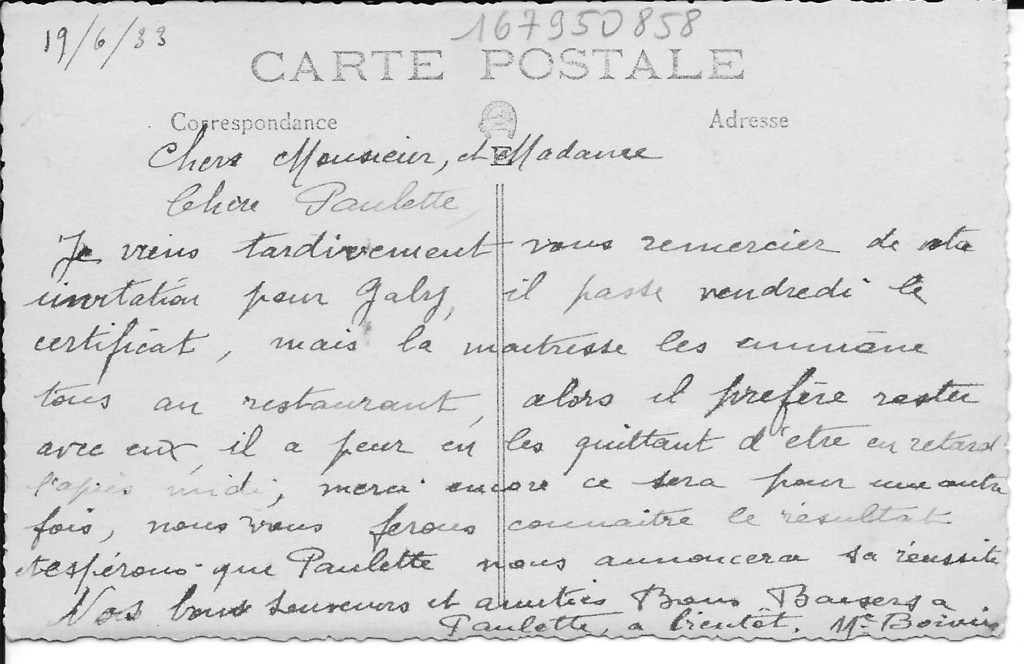 19/6/33
167950858
CARTE POSTALE
Correspondance
Adresse
Chers Monsieur, et Madame
Chère Paulette,
Je viens tardivement vous remercier de votre
invitation pour Gaby, il passe vendredi le
certificat, mais la maitresse les emmène
tous au restaurant, alors il préfère rester
avec eux, il a peur en les quittant d'etre en retard
l'après midi, merci encore ce sera pour une autre
fois, nous vous ferons connaitre le résultat
et espérons que Paulette nous annoncera sa réussite
Nos bons souvenirs et amitiés Bons Baisers a
Paulette, a bientôt. Me